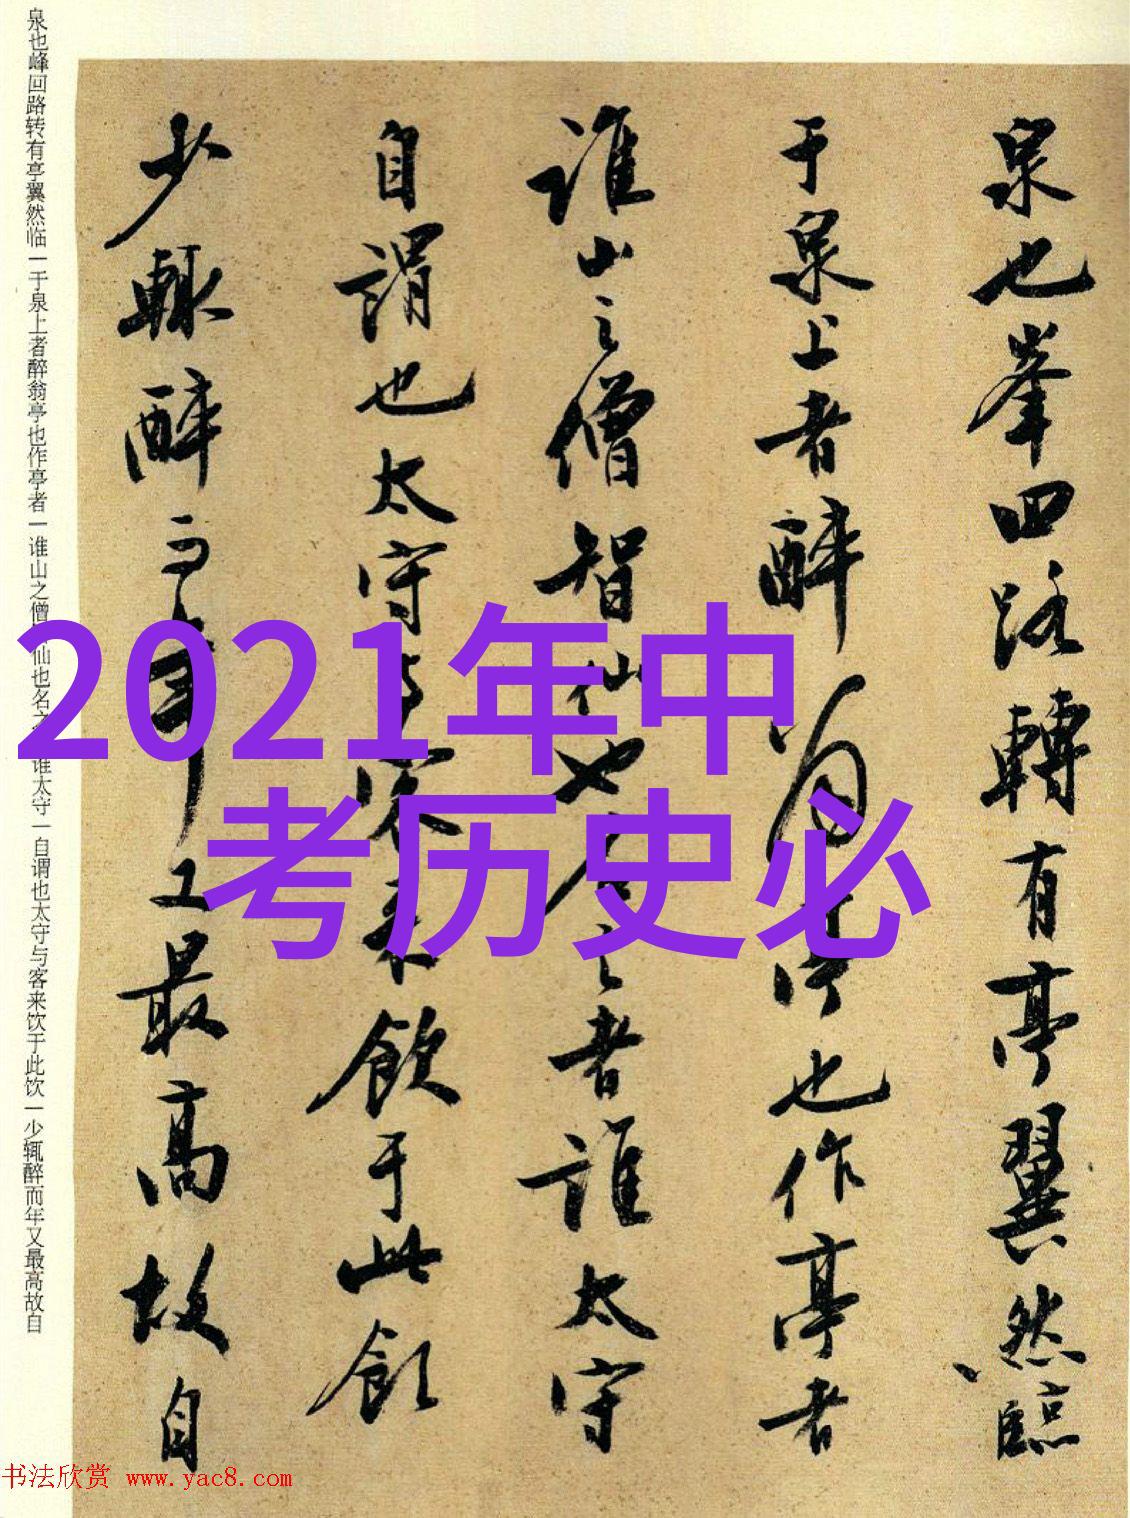 2021年中
考历史必
泉也峯回路轉有亭翼然臨
于泉上者醉翁亭也作亭者
誰山之僧智仙也名之者誰太守
自謂也太守與客來飲于此飲
少輒醉而年又最高故自
泉也峰回路转有亭翼然临一于泉上者醉翁亭也作亭者一谁山之僧仙也名之谁太守一自谓也太守与客来饮于此饮一少辄醉而年又最高故自
书法欣赏 www.yac8.com